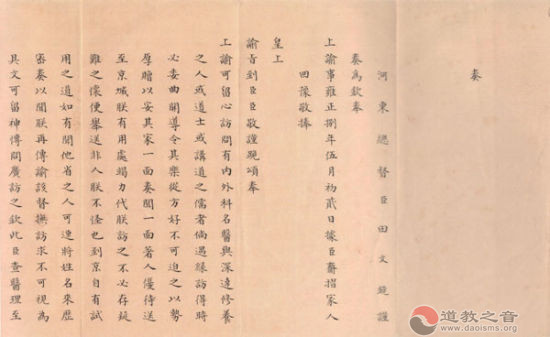 奏
河東總督臣田文鏡謹
奏為欽奉
上諭事雍正捌年伍月初貳日據臣齎摺家人
回豫敬捧
皇上
諭旨到臣臣敬謹跪頌奉
上諭可留心訪問有內外科名醫與深達修養
之人或道士或講道之儒者倘遇緣訪得時
必委曲開導令其樂從方好不可迫之以勢
厚贈以安其家一面奏聞一面著人優待送
至京城朕有用處竭力代朕訪之不必存疑
難之懷便舉送非人朕不怪也到京自有試
用之道如有聞他省之人可速將姓名來歷
密奏以聞朕再傳諭該督撫訪求不可視為
具文可留神博問廣訪之欽此臣查醫理至
道教之音
www.daoisms.org